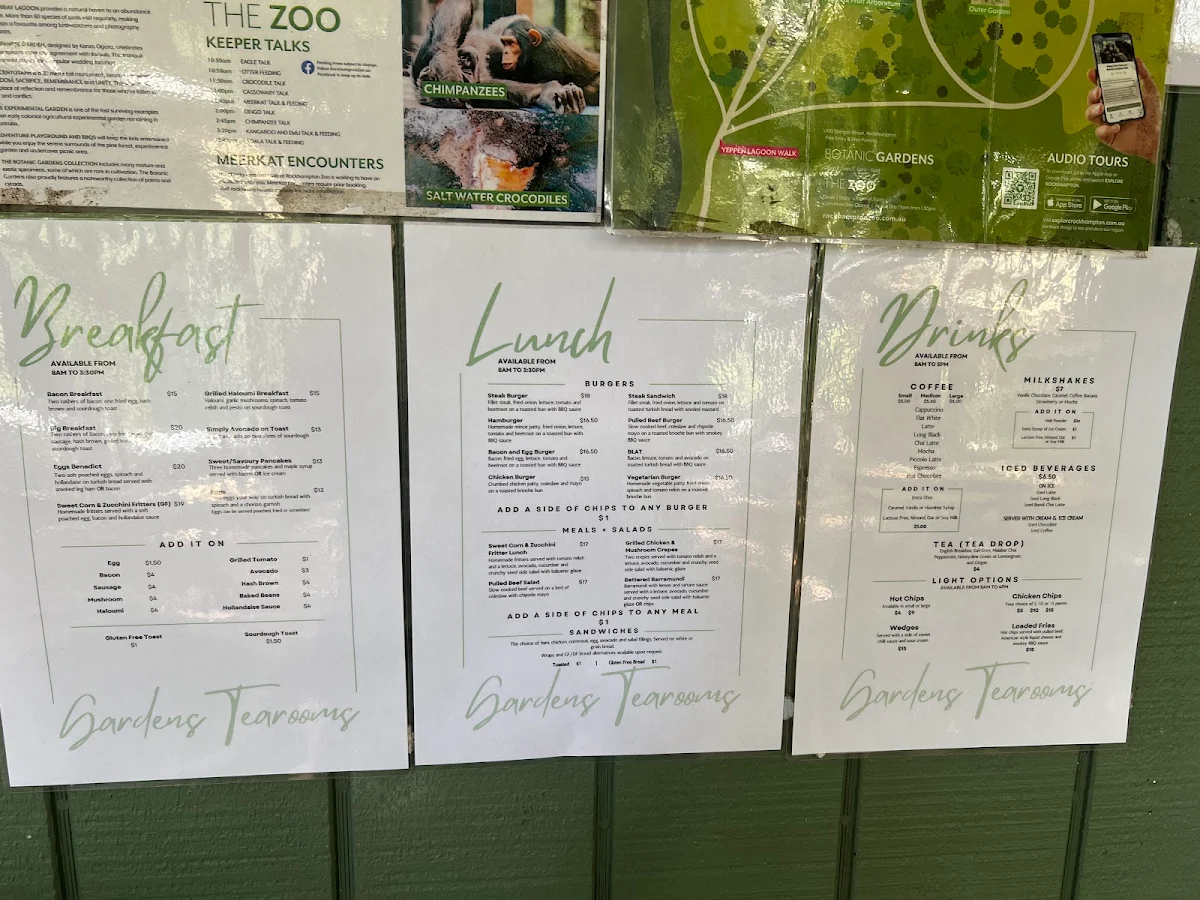 THE ZOO
KEEPER TALKS
10:30am EAGLE TALK
10:50am OTTER FEEDING
CROCODILE TALK
CASSOWARY TALK
MEERKAT TALK & FEEDING
DINGO TALK
2:45pm CHIMPANZEE TALK
3:20pm KANGAROO AND EMU TALK & FEEDING
KOALA TALK & FEEDING
MEERKAT ENCOUNTERS
CHIMPANZEES
SALT WATER CROCODILES
Fruit Arboretum
Outer Garden
YEPPEN LAGOON WALK
BOTANIC GARDENS
THE ZOO
rockhamptonzoo.com.au
AUDIO TOURS
App Store
Google Play
Breakfast
AVAILABLE FROM
8AM TO 3:30PM
Bacon Breakfast $15
Two rashers of bacon, one fried egg, hash
brown and sourdough toast
Big Breakfast $20
Two rashers of bacon,
sausage, hash brown, grilled
sourdough toast
Eggs Benedict $20
Two soft poached eggs, spinach and
hollandaise on turkish bread served with
smoked leg ham OR bacon
Sweet Corn & Zucchini Fritters (GF) $19
Homemade fritters served with a soft
poached egg, bacon and hollandaise sauce
Grilled Haloumi Breakfast $15
Haloumi, garlic mushrooms, spinach, tomato
relish and pesto on sourdough toast
Simply Avocado on Toast $13
on two slices of sourdough
Sweet/Savoury Pancakes $13
Three homemade pancakes and maple syrup
served with bacon OR ice cream
$13
eggs your way on turkish bread with
spinach and a chorizo garnish
Eggs can be served poached, fried or scrambled
ADD IT ON
Egg $1.50
Bacon $4
Sausage $4
Mushroom $4
Haloumi $4
Grilled Tomato $1
Avocado $3
Hash Brown $4
Baked Beans $4
Hollandaise Sauce $4
Gluten Free Toast
$1
Sourdough Toast
$1.50
Gardens Tearooms
Lunch
AVAILABLE FROM
8AM TO 3:30PM
BURGERS
Steak Burger $18
Fillet steak, fried onion, lettuce, tomato and
beetroot on a toasted bun with BBQ sauce
Hamburger $16.50
Homemade mince patty, fried onion, lettuce,
tomato and beetroot on a toasted bun with
BBQ sauce
Bacon and Egg Burger $16.50
Bacon, fried egg, lettuce, tomato and
beetroot on a toasted bun with BBQ sauce
Chicken Burger $15
Crumbed chicken patty, coleslaw and mayo
on a toasted brioche bun
Steak Sandwich $18
Fillet steak, fried onion, lettuce and tomato on
toasted turkish bread with seeded mustard
Pulled Beef Burger $16.50
Slow cooked beef, coleslaw and chipotle
mayo on a toasted brioche bun with smokey
BBQ sauce
BLAT $16.50
Bacon, lettuce, tomato and avocado on
toasted turkish bread with BBQ sauce
Vegetarian Burger $16.50
Homemade vegetable patty, fried onion,
spinach and tomato relish on a toasted
brioche bun
ADD A SIDE OF CHIPS TO ANY BURGER
$1
MEALS + SALADS
Sweet Corn & Zucchini $17
Fritter Lunch
Homemade fritters served with tomato relish
and a lettuce, avocado, cucumber and
crunchy seed side salad with balsamic glaze
Pulled Beef Salad $17
Slow cooked beef served on a bed of
coleslaw with chipotle mayo
Grilled Chicken & $17
Mushroom Crepes
Two crepes served with tomato relish and a
lettuce, avocado, cucumber and crunchy seed
side salad with balsamic glaze
Battered Barramundi $17
Barramundi with lemon and tartare sauce
served with a lettuce, avocado, cucumber
and crunchy seed side salad with balsamic
glaze OR chips
ADD A SIDE OF CHIPS TO ANY MEAL
$1
SANDWICHES
The choice of ham, chicken, corned meat, egg, avocado and salad fillings. Served on white or
grain bread
Wraps and GF/DF bread alternatives available upon request
Toasted $1 | Gluten Free Bread $1
Gardens Tearooms
Drinks
AVAILABLE FROM
8AM TO 5PM
COFFEE
Small Medium Large
$5.00 $5.60 $6.00
Cappuccino
Flat White
Latte
Long Black
Chai Latte
Mocha
Piccolo Latte
Espresso
Hot Chocolate
ADD IT ON
Extra Shot
Caramel, Vanilla or Hazelnut Syrup
Lactose Free, Almond, Oat or Soy Milk
$1.00
MILKSHAKES
$7
Vanilla, Chocolate, Caramel, Coffee, Banana
Strawberry or Mocha
ADD IT ON
Malt Powder
Extra Scoop of Ice Cream $1
Lactose Free, Almond, Oat
or Soy Milk $1
ICED BEVERAGES
$6.50
ON ICE
Iced Latte
Iced Long Black
Iced Banoi Chai Latte
SERVED WITH CREAM & ICE CREAM
Iced Chocolate
Iced Coffee
TEA (TEA DROP)
English Breakfast, Earl Grey, Malabar Chai,
Peppermint, Honeydew Green or Lemongrass
and Ginger
$4
LIGHT OPTIONS
AVAILABLE FROM 8AM TO 4PM
Hot Chips
Available in small or large
$4 $9
Wedges
Served with a side of sweet
chilli sauce and sour cream
$13
Chicken Chips
Your choice of 5, 10 or 15 pieces
$5 $10 $15
Loaded Fries
Hot chips served with pulled beef,
American style liquid cheese and
smokey BBQ sauce
$15
Gardens Tearooms